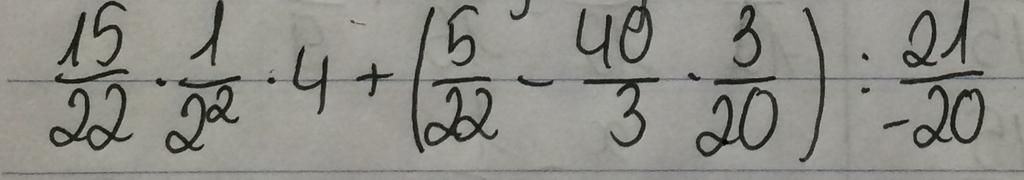 15/22 · 1/2² · 4 + (5/22 - 40/3 · 3/20) : 21/-20